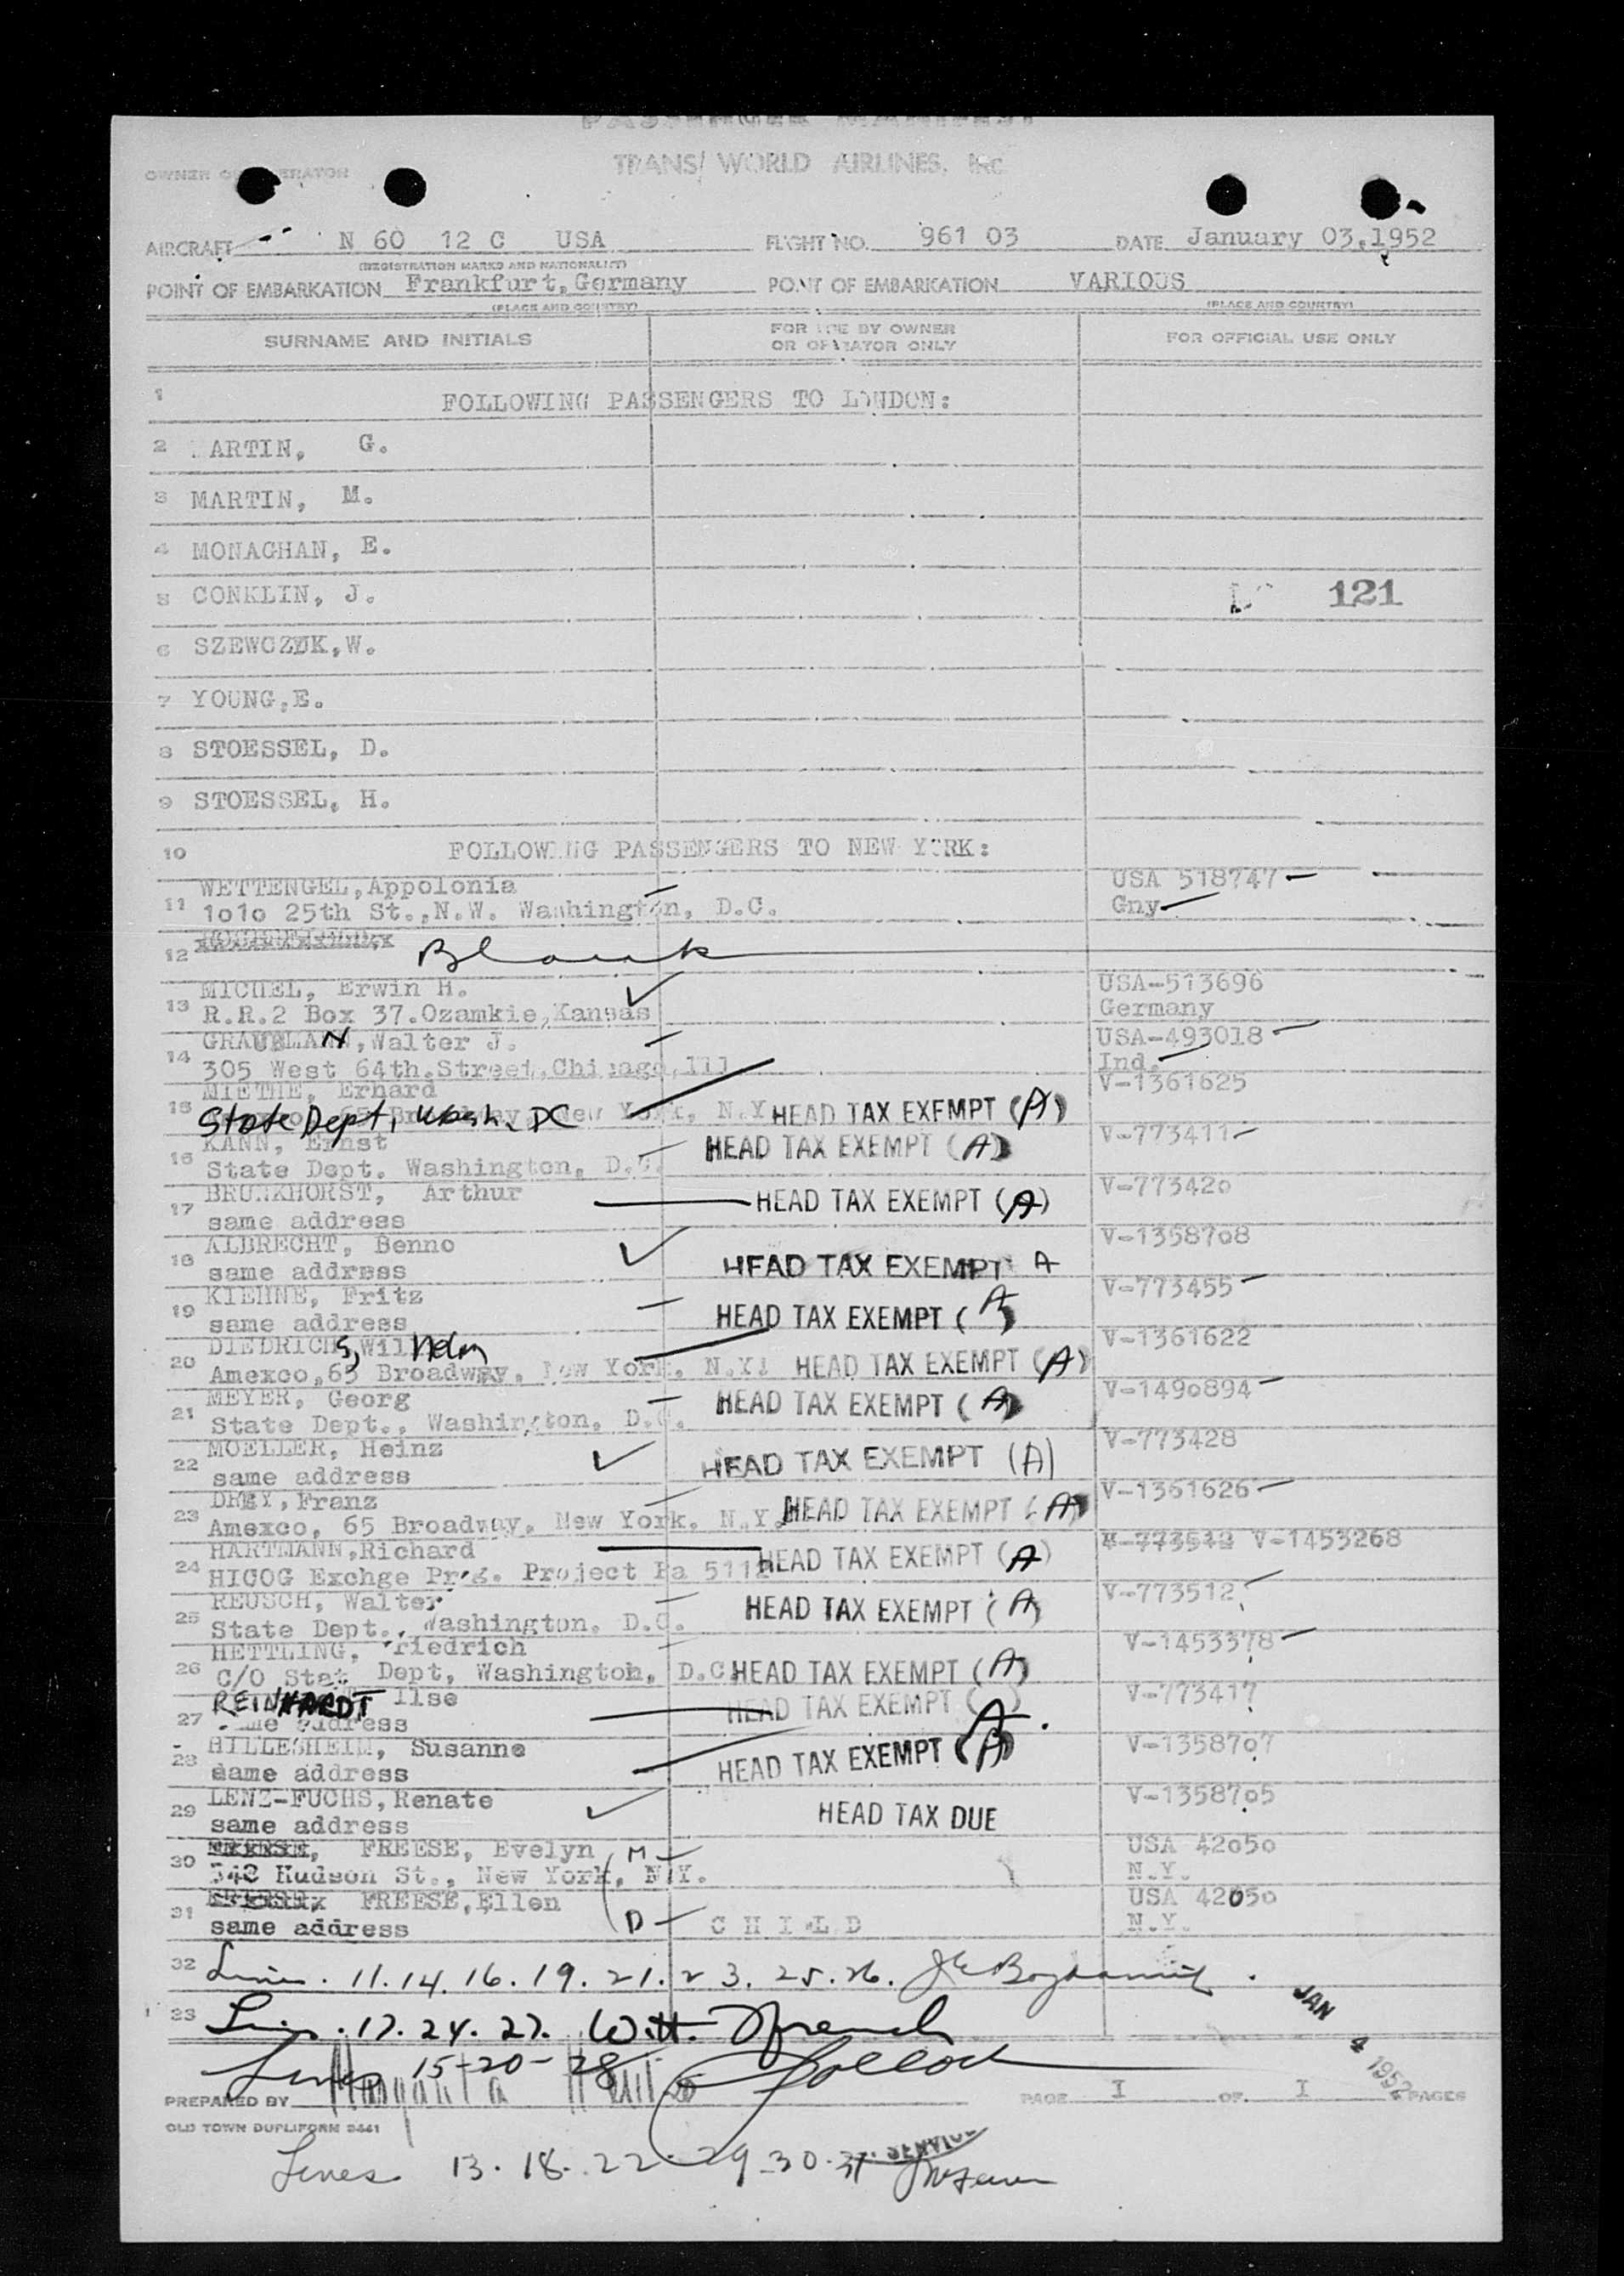 PASSENGER MANIFEST
TRANS/ WORLD AIRLINES, Inc
OWNER OR OPERATOR
AIRCRAFT N 60 12 C USA FLIGHT NO. 961 03 DATE January 03,1952
(REGISTRATION MARKS AND NATIONALITY)
POINT OF EMBARKATION Frankfurt,Germany POINT OF EMBARKATION VARIOUS
(PLACE AND COUNTRY) (PLACE AND COUNTRY)
SURNAME AND INITIALS FOR USE BY OWNER OR OPERATOR ONLY FOR OFFICIAL USE ONLY
1 FOLLOWING PASSENGERS TO LONDON:
2 MARTIN, G.
3 MARTIN, M.
4 MONAGHAN, E.
5 CONKLIN, J. 121
6 SZEWCZUK,W.
7 YOUNG,E.
8 STOESSEL, D.
9 STOESSEL, H.
10 FOLLOWING PASSENGERS TO NEW YORK:
11 WETTENGEL,Appolonia USA 518747
1o1o 25th St.,N.W. Washington, D.C. Gny
12 Blank
13 MICHEL, Erwin H. USA-513696
R.R.2 Box 37.Ozamkie,Kansas Germany
14 GRAUBLANN,Walter J. USA-493018
305 West 64th.Street,Chicago,Ill Ind.
15 MIETHE, Erhard V-1361625
State Dept, Wash. DC HEAD TAX EXEMPT (A)
16 KANN, Ernst V-773411
State Dept. Washington, D.C. HEAD TAX EXEMPT (A)
17 BRUNKHORST, Arthur V-77342o
same address HEAD TAX EXEMPT (A)
18 ALBRECHT, Benno V-13587o8
same address HEAD TAX EXEMPT A
19 KIEHNE, Fritz V-773455
same address HEAD TAX EXEMPT (A)
20 DIEDRICHS, Wilhelm V-1361622
Amexco,65 Broadway, New York, N.Y. HEAD TAX EXEMPT (A)
21 MEYER, Georg V-149o894
State Dept., Washington, D.C. HEAD TAX EXEMPT (A)
22 MOELLER, Heinz V-773428
same address HEAD TAX EXEMPT (A)
23 DREY,Franz V-1361626
Amexco, 65 Broadway, New York. N.Y. HEAD TAX EXEMPT (A)
24 HARTMANN,Richard V-773512 V-1453268
HICOG Exchge Prog. Project Pa 5112 HEAD TAX EXEMPT (A)
25 REUSCH, Walter V-773512
State Dept., Washington, D.C. HEAD TAX EXEMPT (A)
26 HETTLING, Friedrich V-1453378
C/O State Dept, Washington, D.C. HEAD TAX EXEMPT (A)
27 REINHARDT Ilse V-773417
same address HEAD TAX EXEMPT (A)
28 HILLESHEIM, Susanne V-13587o7
same address HEAD TAX EXEMPT (A)
29 LENZ-FUCHS,Renate V-13587o5
same address HEAD TAX DUE
30 FREESE, FREESE, Evelyn M USA 42o5o
348 Hudson St., New York, N.Y. N.Y.
31 FREESE,Ellen USA 42050
same address D CHILD N.Y.
32 Lines. 11.14.16.19.21.23.25.26.
33 Lines. 17.24.27. Witt.
JAN 4 1952
Lines 15-20-28
PREPARED BY PAGE I OF I PAGES
OLD TOWN DUPLIFORM 8441
SERVICE
Lines 13.18.22.29.30.31